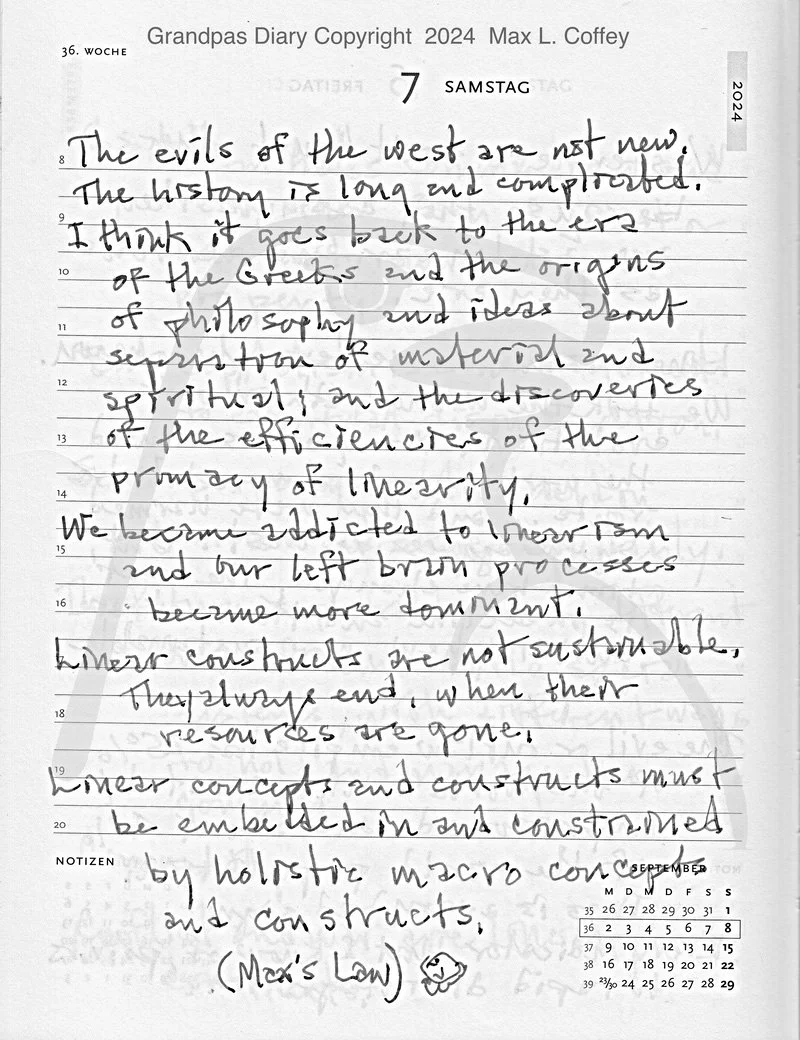 Grandpas Diary Copyright 2024 Max L. Coffey
36. WOCHE
7 SAMSTAG
2024
8 The evils of the west are not new.
The history is long and complicated.
9 I think it goes back to the era
10 of the Greeks and the origins
11 of philosophy and ideas about
separation of material and
12 spiritual; and the discoveries
13 of the efficiencies of the
14 primacy of linearity.
We became addicted to linearism
15 and our left brain processes
16 became more dominant.
Linear constructs are not sustainable.
They always end, when their
18 resources are gone.
19 Linear concepts and constructs must
20 be embedded in and constrained
NOTIZEN by holistic macro concepts
and constructs.
(Max's Law)
SEPTEMBER
M D M D F S S
35 26 27 28 29 30 31 1
36 2 3 4 5 6 7 8
37 9 10 11 12 13 14 15
38 16 17 18 19 20 21 22
39 23/30 24 25 26 27 28 29